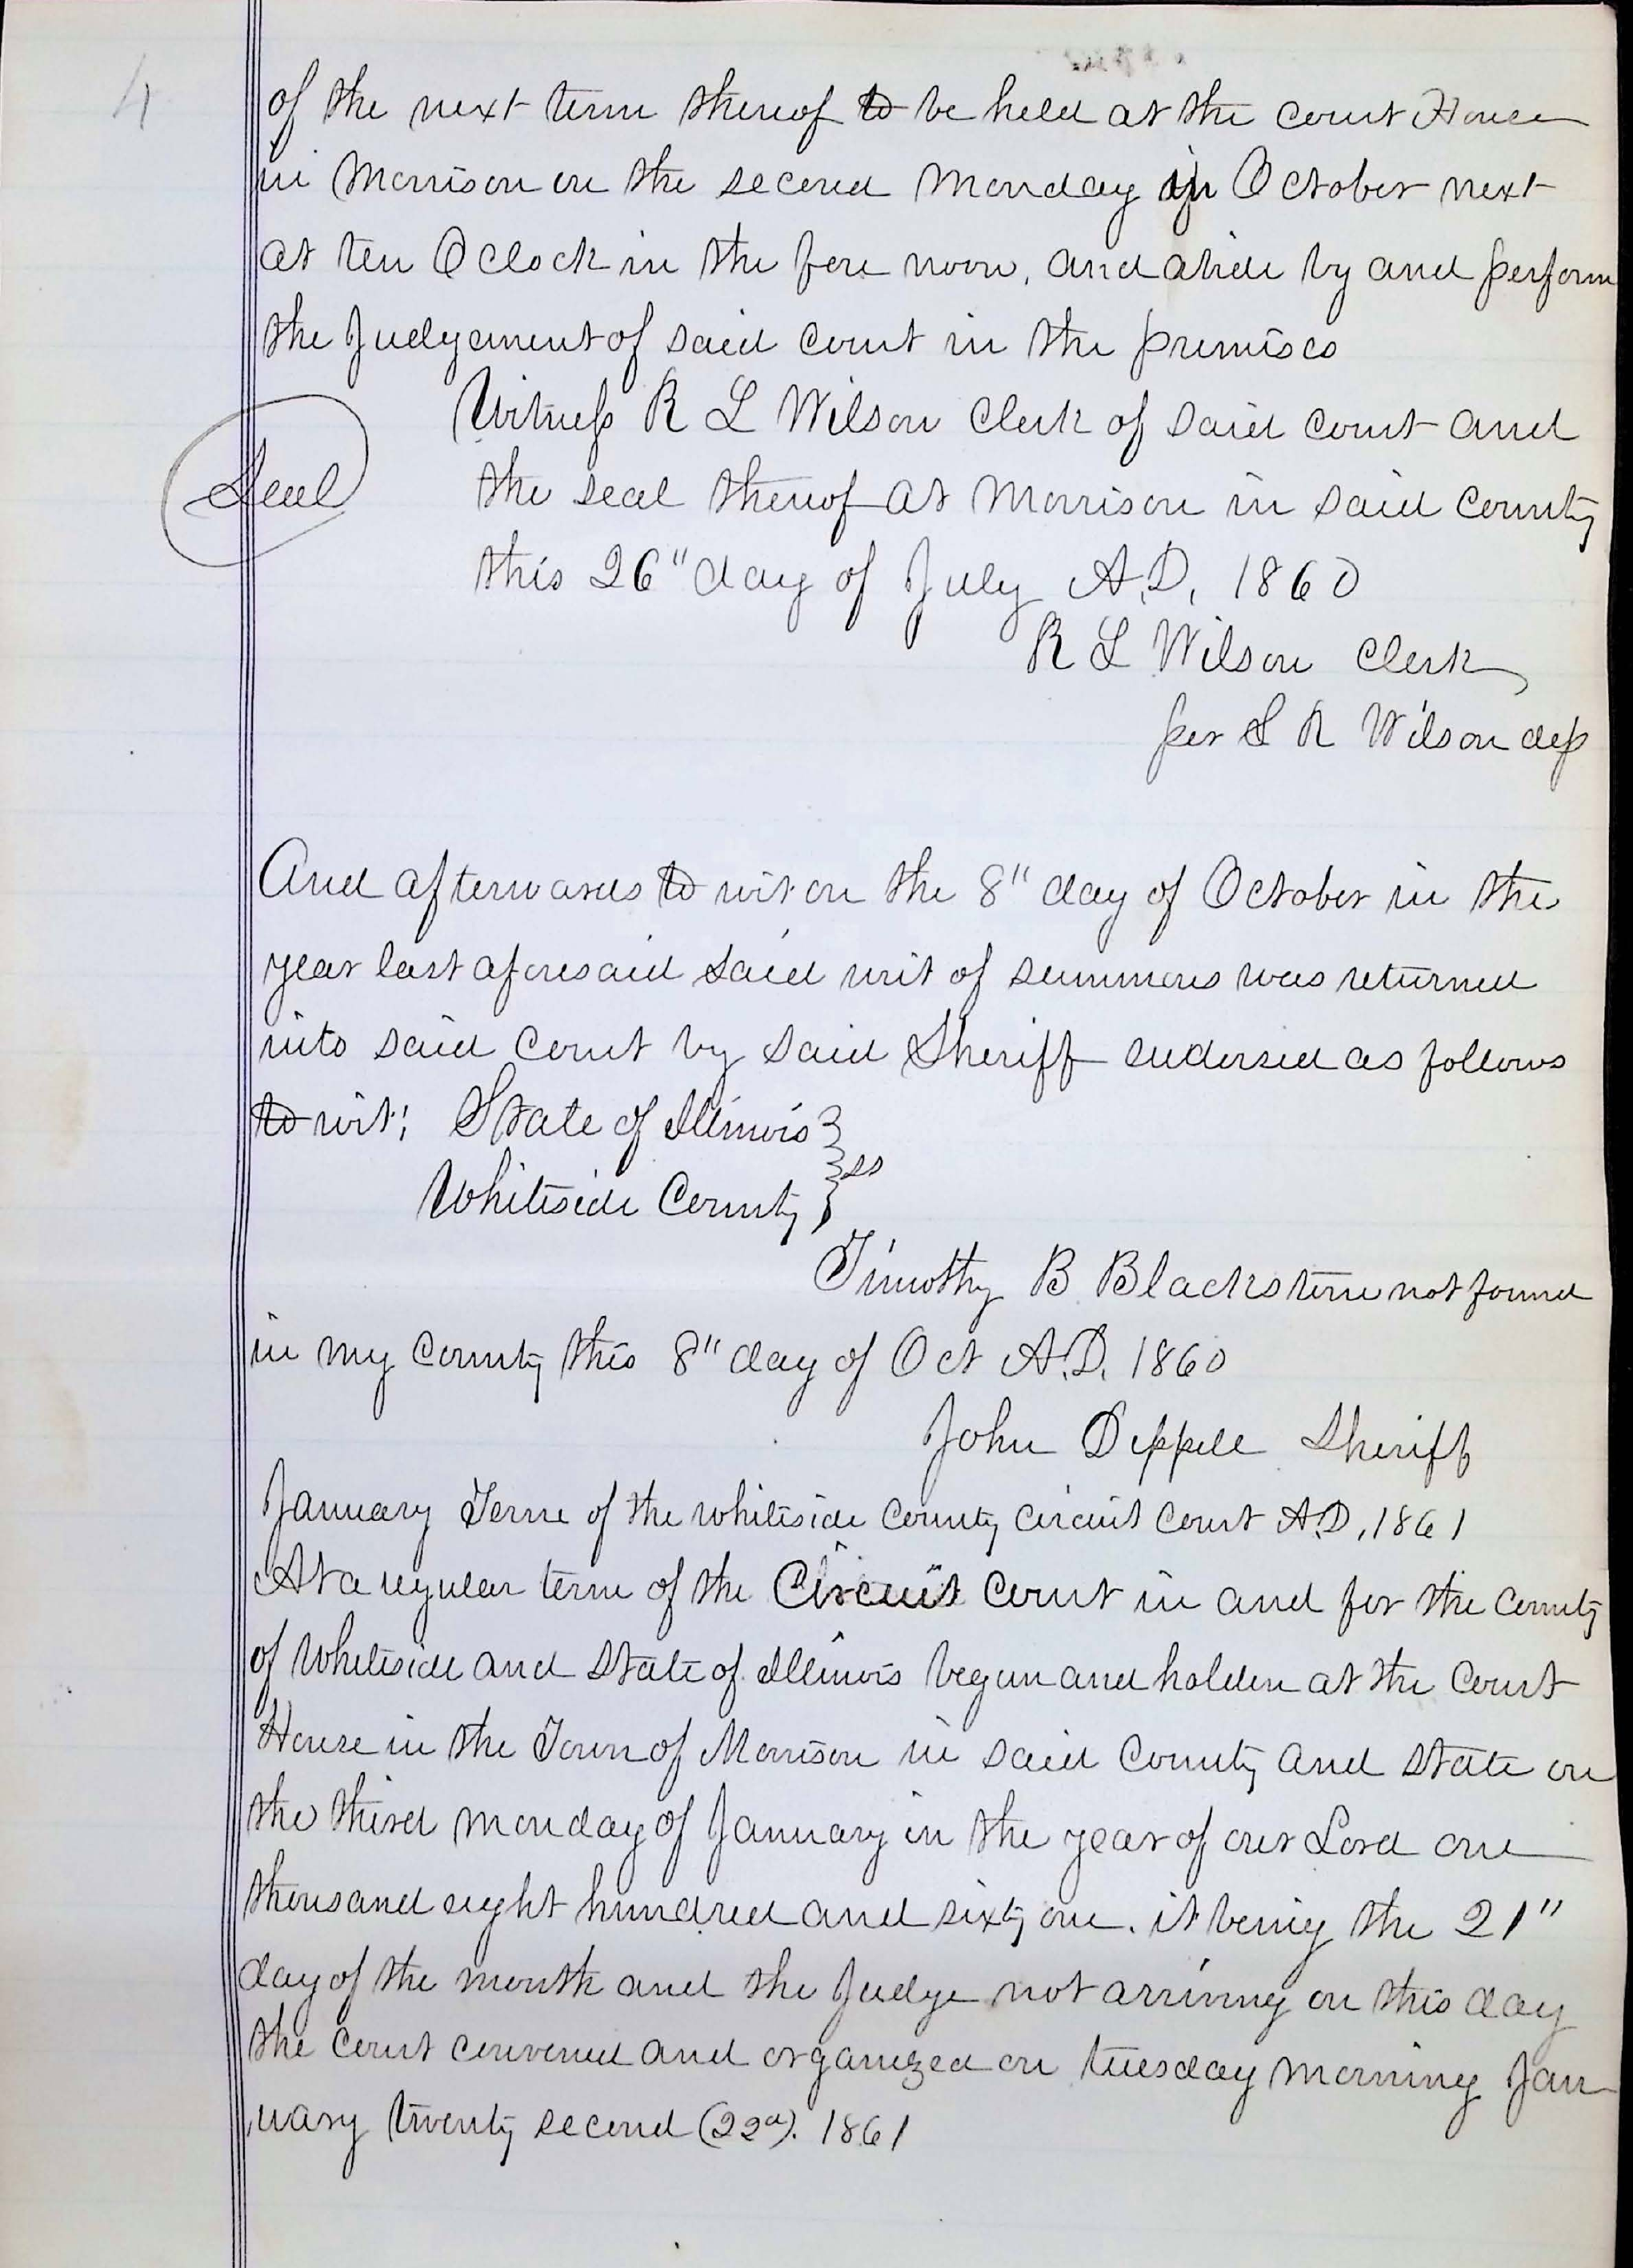 4
of the next term thereof to be held at the court House
in Morrison on the second Monday in October next
at ten O clock in the fore noon, and abide by and perform
the Judgement of said court in the premises
Witness R L Wilson Clerk of said court and
Seal
the seal thereof at Morrison in said county
this 26" day of July A.D. 1860
R L Wilson Clerk
per S R Wilson dep
And afterwards to wit on the 8" day of October in the
year last aforesaid said writ of summons was returned
into said Court by said Sheriff endorsed as follows
to wit; State of Illinois }
} ss
Whiteside County }
Timothy B Blackstone not found
in my County this 8" day of Oct A.D. 1860
John Deppell Sheriff
January Term of the Whiteside County Circuit Court A.D. 1861
At a regular term of the Circuit Court in and for the County
of Whiteside and State of Illinois begun and holden at the Court
House in the Town of Morrison in said County and State on
the third Monday of January in the year of our Lord one
thousand eight hundred and sixty one. it being the 21"
day of the month and the Judge not arriving on this day
the court convened and organized on tuesday morning Jan
uary twenty second (22d). 1861